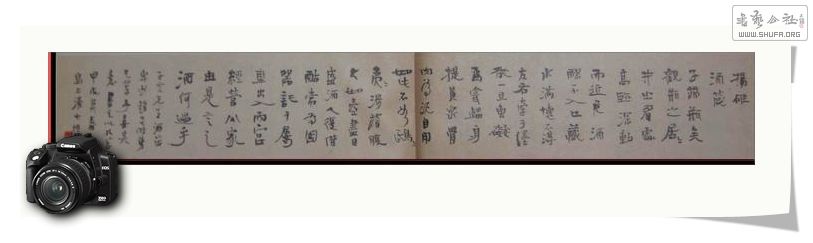 書藝公社
WWW.SHUFA.ORG
揚雄
酒箴
子猶瓶矣
觀瓶之居
井之眉處
高臨深動
而近危酒
醪不入口藏
水滿懷不得
左右牽于
一旦叀礙
為瓽身
提黃泉骨
肉為泥自用
如此不如鴟
夷滑稽腹
大如壺盡日
盛酒人復借
酤常為國
器託于屬
車出入兩宮
經營公家
由是言之
酒何過乎
Canon
EOS